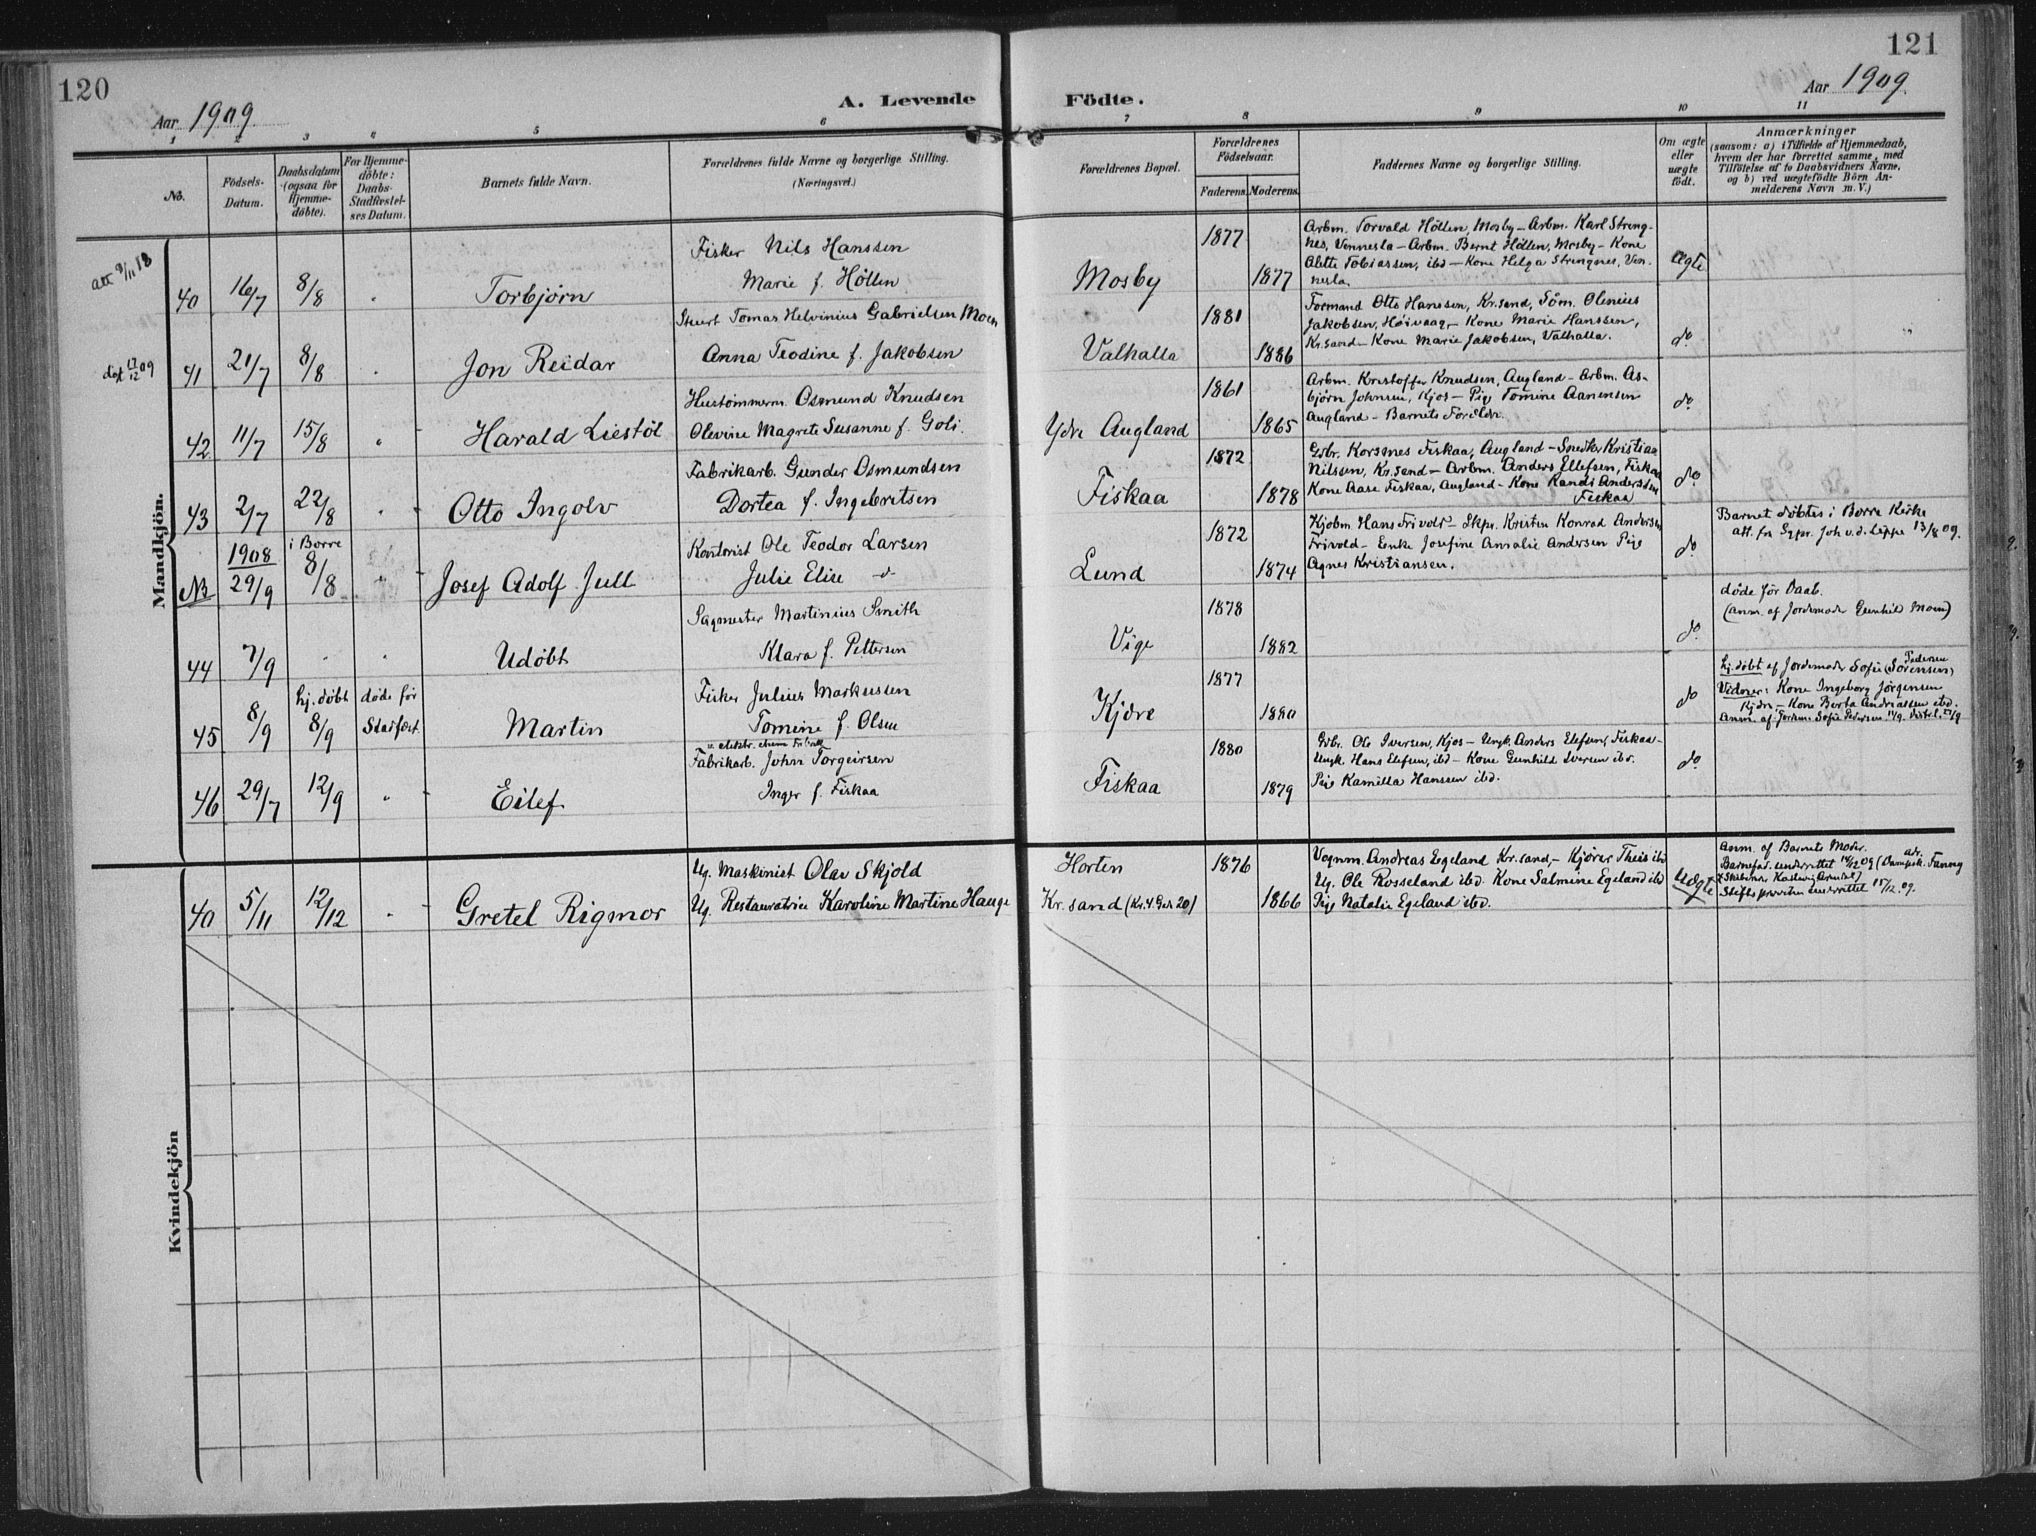 120
Aar 1909.
A. Levende
1
2
3
4
5
6
No.
Födsels-
Datum.
Daabsdatum
(ogsaa for
Hjemme-
döbte).
For Hjemme-
döbte:
Daabs-
Stadfæstel-
ses Datum.
Barnets fulde Navn.
Forældrenes fulde Navne og borgerlige Stilling.
(Næringsvei.)
Mandkjön.
40
16/7
8/8
Torbjørn
Fisker Nils Hanssen
Marie f. Höllen
41
21/7
8/8
Jon Reidar
Stuert Tomas Helvinius Gabrielsen Moen
Anna Teodine f. Jakobsen
42
11/7
15/8
Harald Liestöl
Hustömmerm. Osmund Knudsen
Olevine Magrete Susanne f. Goli.
43
2/7
22/8
Otto Ingolv
Fabrikarb. Gunder Osmundsen
Dortea f. Ingebretsen
1908
29/9
i Borre
8/8
Josef Adolf Jull
Kontorist Ole Teodor Larsen
Julie Elise
44
7/9
Udøbt
Sagmester Martinius Smith
Klara f. Pettersen
45
8/9
hj. döbt
8/9
døde før
Stadfæst.
Martin
Fisker Julius Markussen
Tomine f. Olsen
46
29/7
12/9
Eilef
Fabrikarb. John Torgeirsen
Inger f. Fiskaa
Kvindekjön
40
5/11
12/12
Gretel Rigmor
Ug. Maskinist Olav Skjold
Ug. Restauratrice Karoline Martine Hauge
121
Aar 1909.
Födte.
7
8
9
10
11
Forældrenes Bopæl.
Forældrenes
Födselsaar.
Faderens.
Moderens.
Faddernes Navne og borgerlige Stilling.
Om ægte
eller
uægte
födt.
Anmærkninger
(saasom: a) i Tilfælde af Hjemmedaab,
hvem der har forrettet samme, med
Tilföielse af to Daabsvidners Navne,
og b) ved uægtefödte Börn An-
melderens Navn m. V.)
Mosby
1877
1877
Arbm. Torvald Höllen, Mosby – Arbm. Karl Streng-
nes, Vennesla – Arbm. Bernt Höllen, Mosby – Kone
Alette Tobiassen, ibd – Kone Helga Strengnes, Ven-
nesla.
ægte
Valhalla
1881
1886
Formand Otto Hanssen, Kr.sand, Söm. Olenius
Jakobsen, Høivaag, – Kone Marie Hanssen,
Kr.sand – Kone Marie Jakobsen, Valhalla.
do
Ydre Augland
1861
1865
Arbm. Kristoffer Knudsen, Augland – Arbm. As-
bjørn Johnsen, Kjos – Pige Tomine Aanensen
Augland – Barnets Forældr.
do
Fiskaa
1872
1878
Gbr. Korsmes Fiskaa, Augland – Snedkr Kristian
Nilssen, Kr.sand – Arbm. Anders Ellefsen, Fiskaa
Kone Aase Fiskaa, Augland – Kone Kandi Anderssen
Fiskaa
do
Lund
1872
1874
Kjøbm. Hans Frivold – Skpr. Kristen Konrad Andersen
Frivold – Enke Josefine Amalie Andersen Pige
Agnes Kristiansen.
do
Barnet døbtes i Borre Kirke
Vige
1878
1882
do
døde før Daab.
(anm. af Jordemodr Gunhild Moen)
Kjære
1877
1880
do
hj. døbt af Jordemodr Sofie Pedersen (Sørensen)
Vidner: Kone Ingeborg Jørgensen
Kjære – Kone Berta Andreassen ibd.
Fiskaa
1880
1879
Gbr. Ole Iversen, Kjos – Ungk. Anders Elefsen, Fiskaa –
Ungk. Hans Elefsen, ibd – Kone Gunhild Iversen ibd.
Pige Kamilla Hanssen ibd.
do
Horten
Kr.sand
1876
1866
Vognm. Andreas Egeland Kr.sand, – Kjører Theis ibd
Ug. Ole Rosseland ibd. Kone Salmine Egeland ibd
Pige Natalie Egeland ibd.
uægte
Anm. af Barnets Moder.